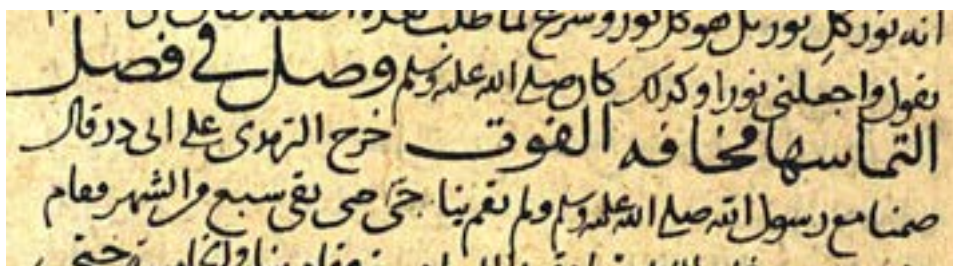 انه نور كل نور بل هو كل نور وشرع لما طلب بهذه الصفة
يقول واجعلني نورا وكذلك كان صلى الله عليه وسلم وصل في فصل
التماسها مخافة الفوت خرج الترمذي على ابى ذر قال
صمنا مع رسول الله صلى الله عليه وسلم ولم يقم بنا حتى بقى سبع من الشهر فقام